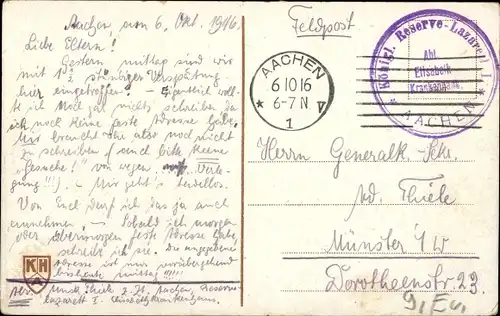 Aachen, am 6. Okt. 1916
Liebe Eltern!
Gestern mittag sind wir
mit 1½ stündiger Verspätung
hier eingetroffen! – Eigentlich woll-
te ich Mal gar nichts schreiben da
ich noch keine feste Adresse habe.
Ihr braucht also noch nicht
zu schreiben (auch bitte keine
"Gesuche!" von wegen Verle-
gung!!!) – Mir geht's tadellos.
Von Euch darf ich das ja auch
annehmen. – Sobald ich morgen
oder übermorgen feste Adresse habe
schreibe ich sie. die angegebene
Adresse ist nur vorübergehend
bis heute mittag!!!!!
Abs. Thiele z. Zt. Aachen, Reserve-
lazarett I. Elisabethkrankenhaus.
KH
Feldpost
AACHEN
6.10.16
6-7 N
* 1 V
Königl. Reserve-Lazarett I.
Abt.
Elisabeth
Krankenhaus
* AACHEN *
Herrn Generalk.-Sekr.
Ad. Thiele
Münster i/W
Dorotheenstr. 23.